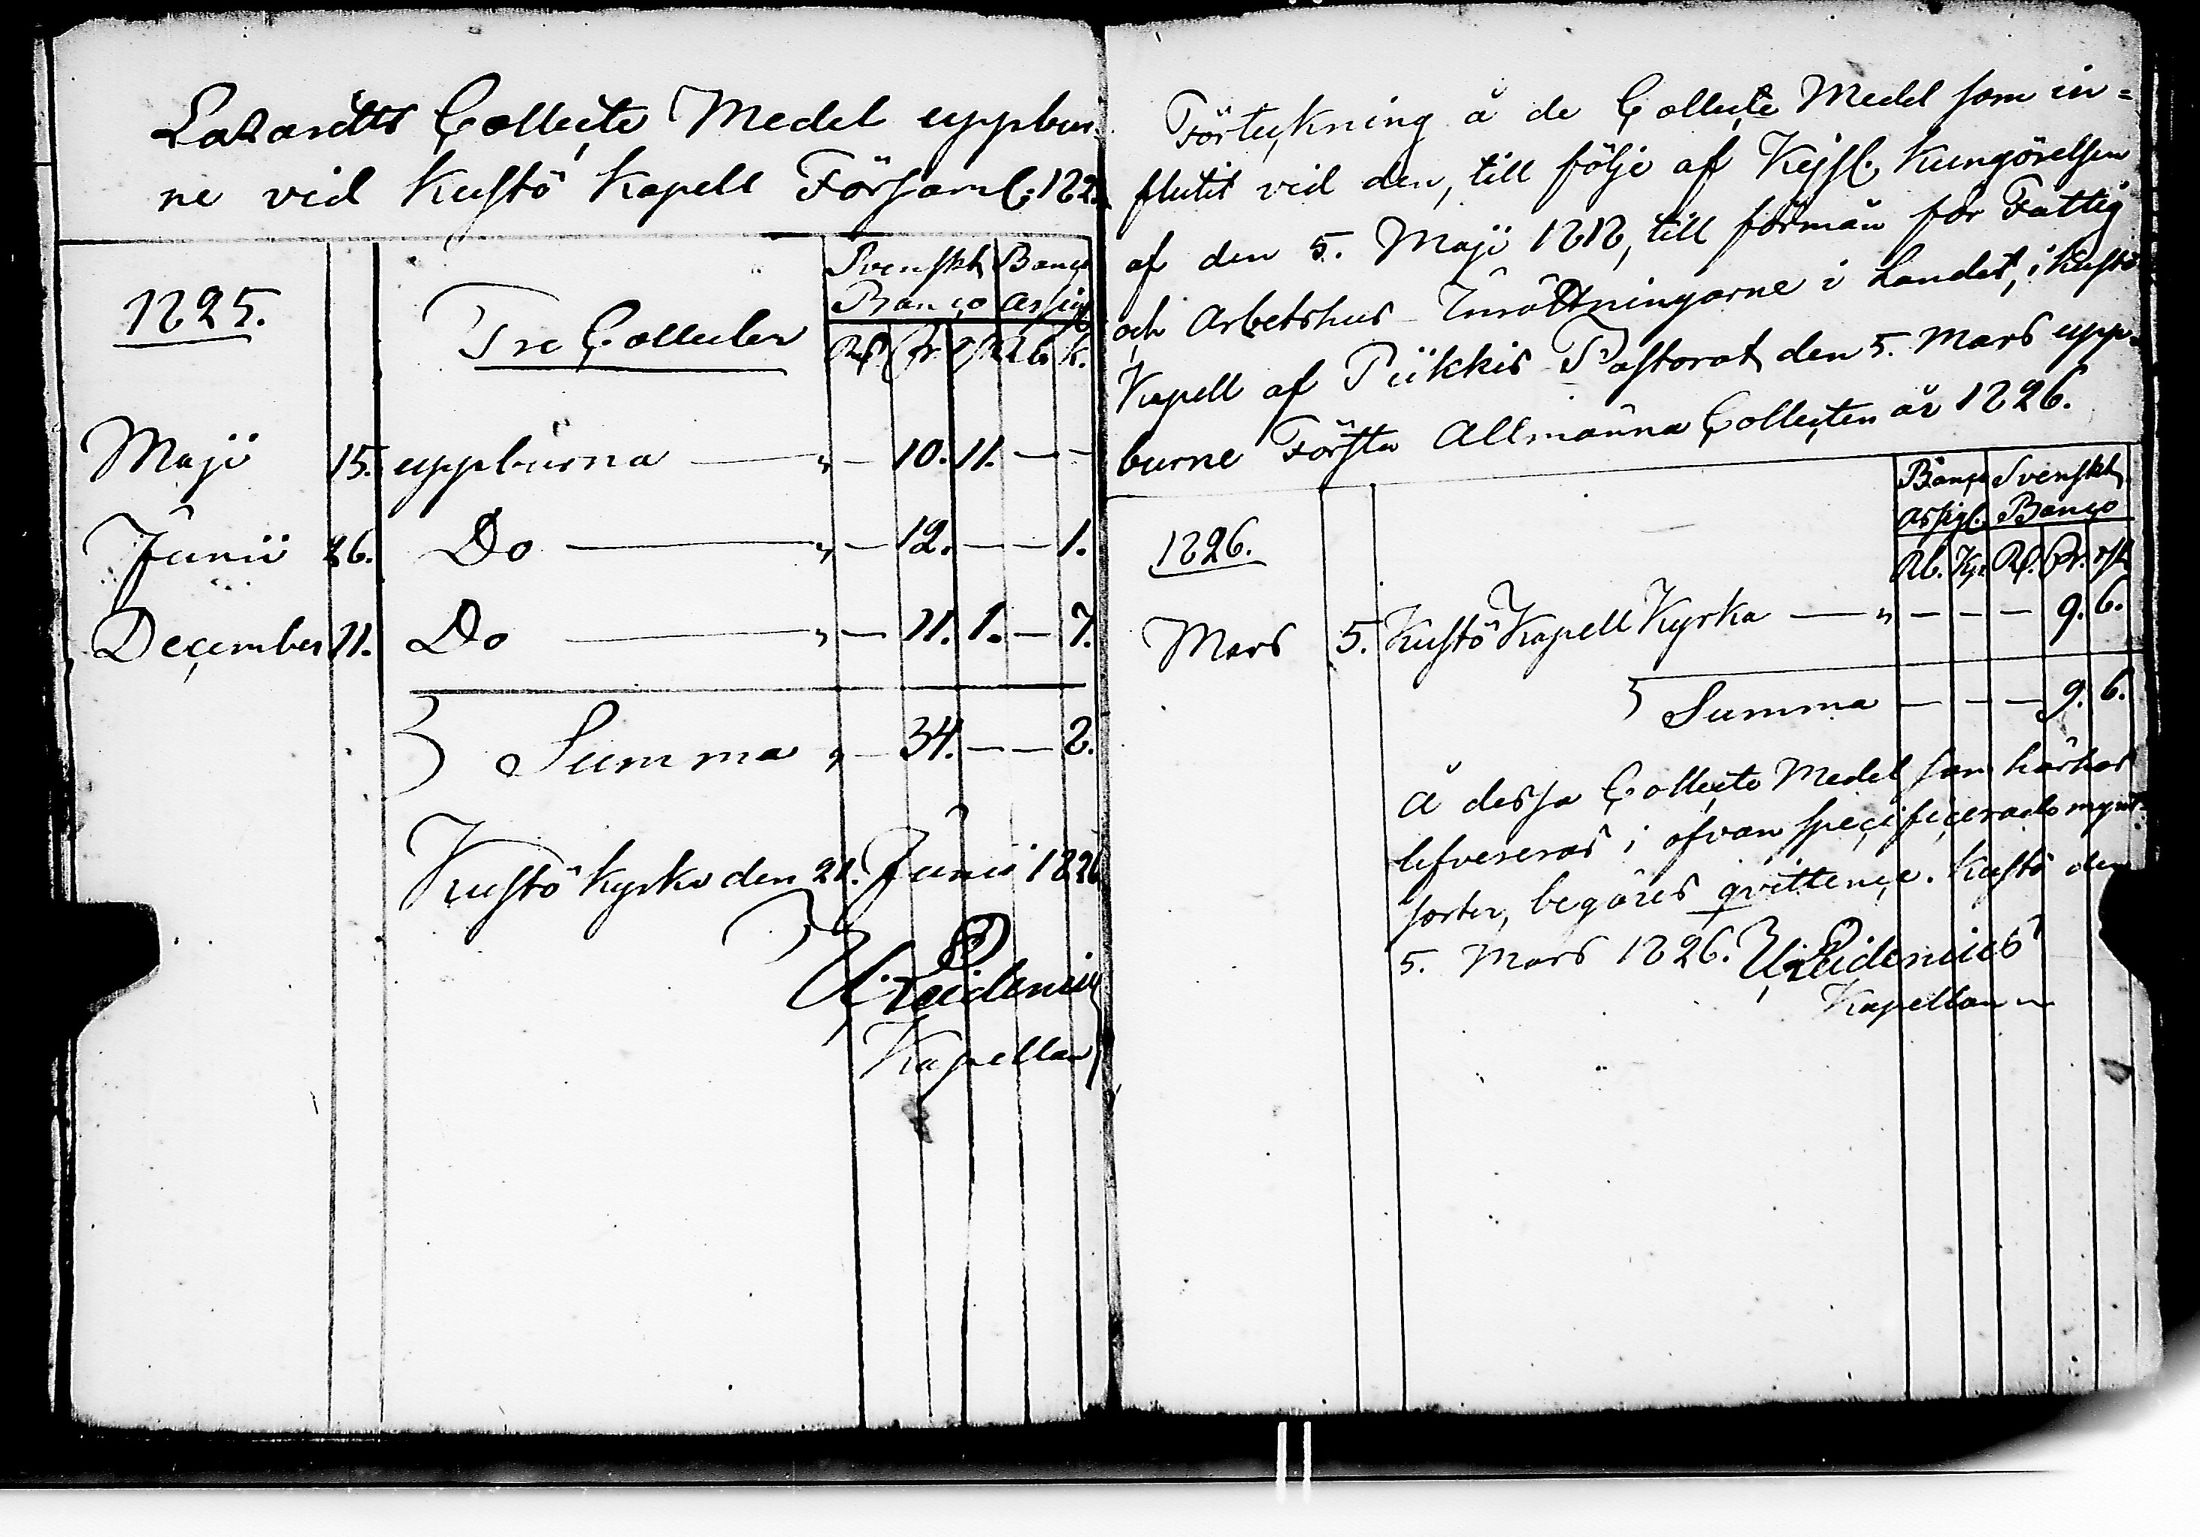 Lazaretts Collecte Medel uppbur-
ne vid Kustö Kapell Församl: 182
1825.
Tre Collecter
Svenskt Banco
Banco Assign
Rd. Sk. rst. Rb. k.
Maji 15. uppburna — „ — 10. 11. — —
Junii 26. Do — „ — 12. — — 1.
December 11. Do — „ — 11. 1. — 7.
Summa „ — 34. — — 8.
Kustö Kyrka den 21. Junii 1826
Kapellan
Förteckning å de Collecte Medel som in=
flutit vid den, till följe af Kejsl. Kungörelsen
af den 5. Maji 1818, till förmån för Fattig
och Arbetshus Inrättningarne i Landet, i Kustö
Kapell af Piikkis Pastorat den 5. Mars upp-
burne Första Allmänna Collecten år 1826.
Banco Assign. Svenskt Banco
1826.
Rb. Kp. Rd. Sk. rst.
Mars 5. Kustö Kapell Kyrka — „ — — — 9. 6.
Summa — — — 9. 6.
Å dessa Collecte Medel som härhos
lefvereras i ofvan specificerade mynt-
sorter, begäres qvittence. Kustö den
5. Mars 1826.
Kapellan